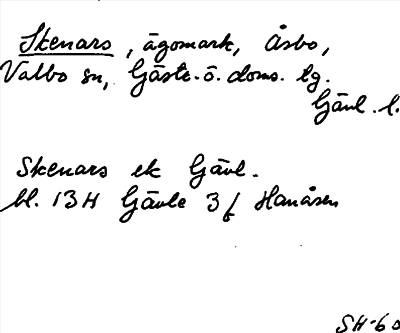 Skenars, ägomark, Åsbo,
Valbo sn, Gästr. ö. doms. lg.
Gävl. l.
Skenars ek Gävl.
bl. 13H Gävle 3 f Hanåsen
SH-60